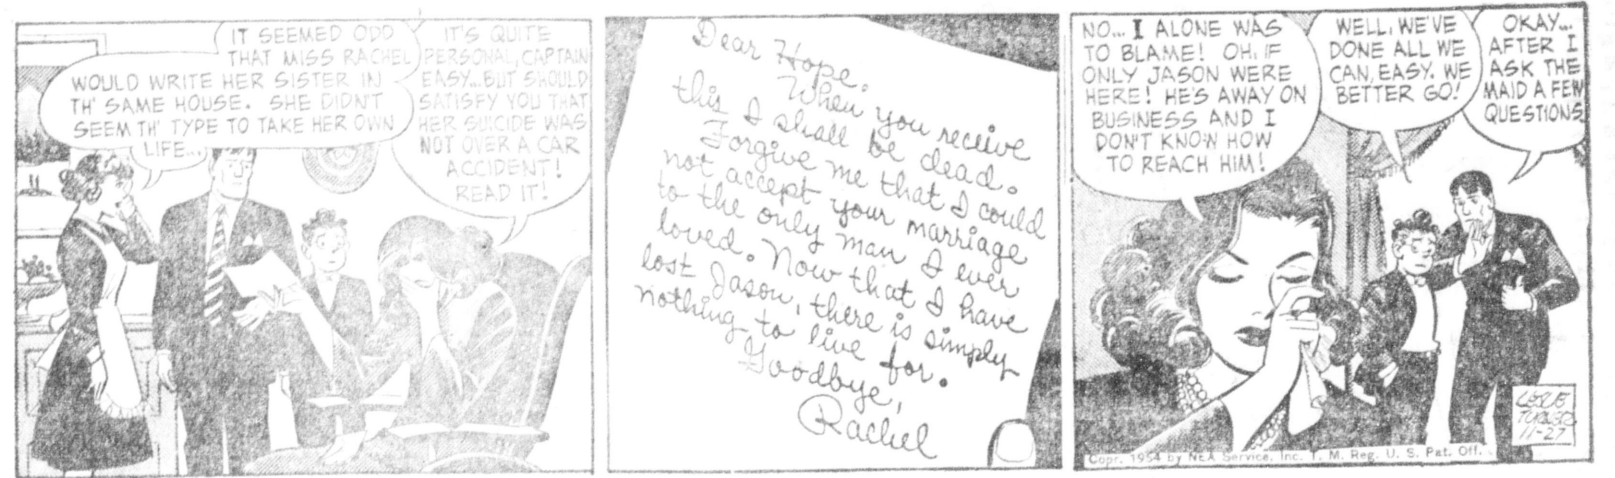 IT SEEMED ODD
THAT MISS RACHEL
WOULD WRITE HER SISTER IN
TH' SAME HOUSE. SHE DIDN'T
SEEM TH' TYPE TO TAKE HER OWN
LIFE...
IT'S QUITE
PERSONAL, CAPTAIN
EASY...BUT SHOULD
SATISFY YOU THAT
HER SUICIDE WAS
NOT OVER A CAR
ACCIDENT!
READ IT!
Dear Hope,
When you receive
this I shall be dead.
Forgive me that I could
not accept your marriage
to the only man I ever
loved. Now that I have
lost Jason, there is simply
nothing to live for.
Goodbye,
Rachel
NO... I ALONE WAS
TO BLAME! OH, IF
ONLY JASON WERE
HERE! HE'S AWAY ON
BUSINESS AND I
DON'T KNOW HOW
TO REACH HIM!
WELL, WE'VE
DONE ALL WE
CAN, EASY. WE
BETTER GO!
OKAY...
AFTER I
ASK THE
MAID A FEW
QUESTIONS
LESLIE
TURNER
11-27
Copr. 1954 by NEA Service, Inc. T. M. Reg. U. S. Pat. Off.